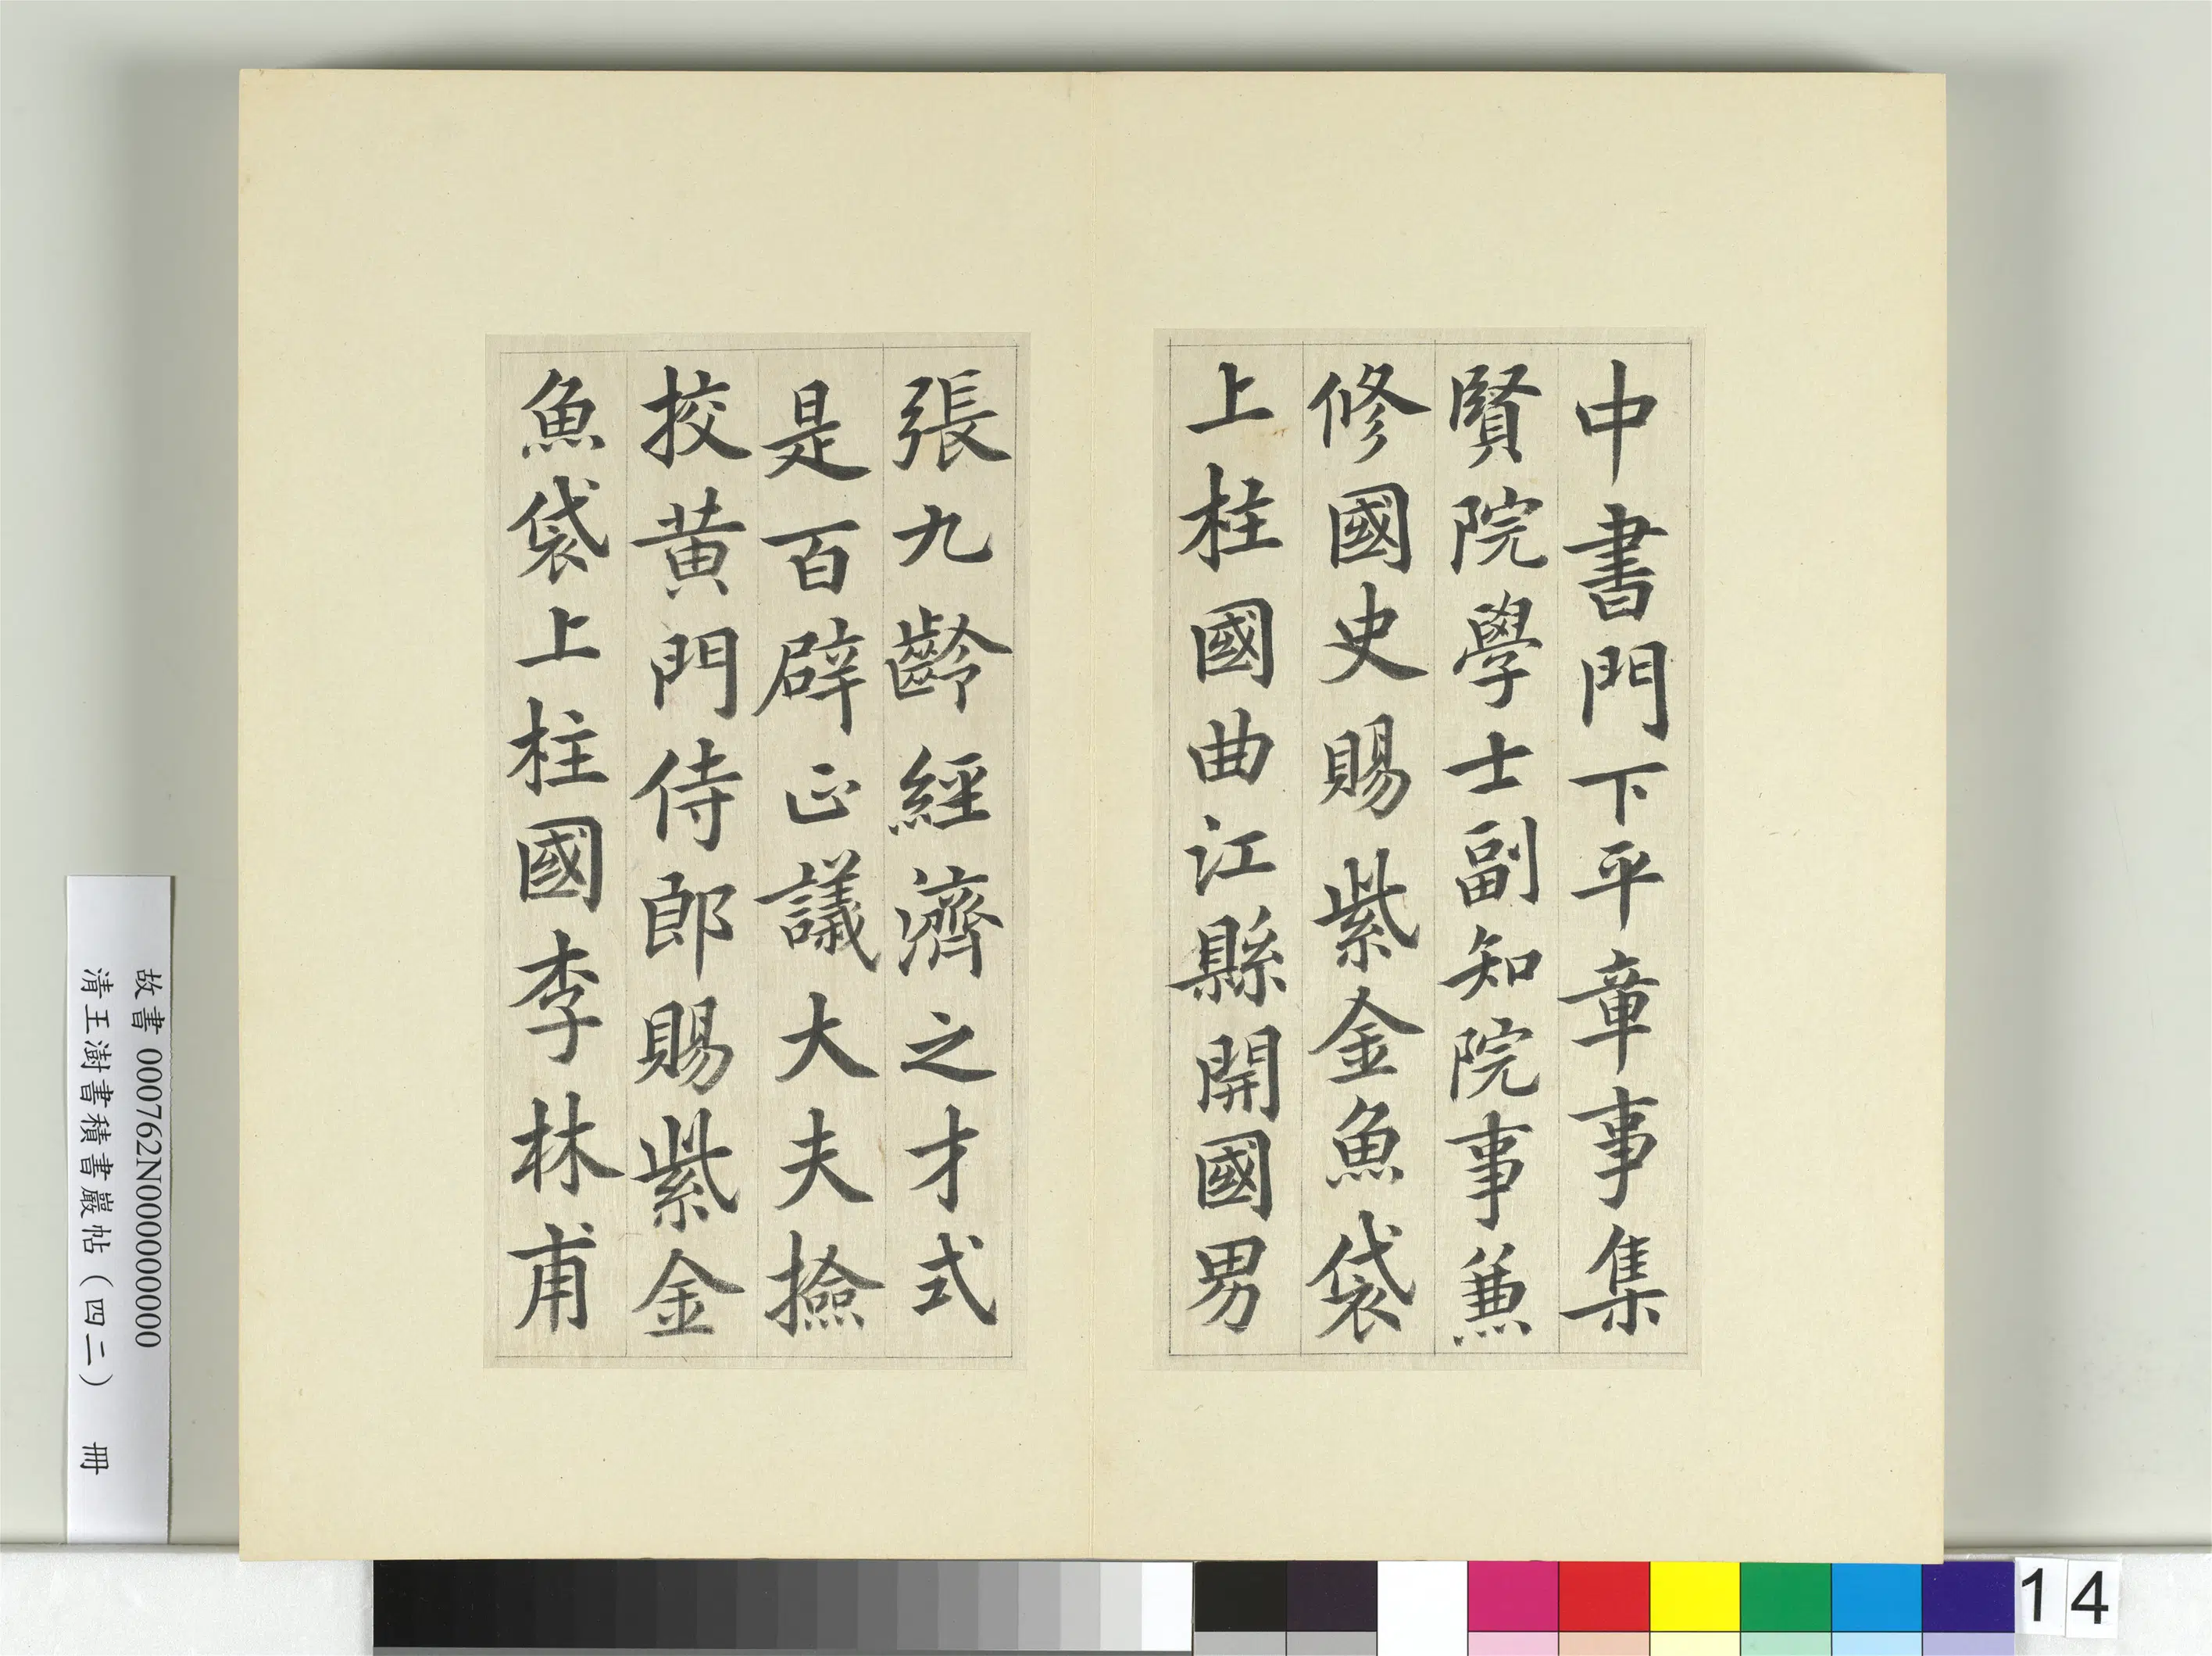 中書門下平章事集
賢院學士副知院事兼
修國史賜紫金魚袋
上柱國曲江縣開國男
張九齡經濟之才式
是百辟正議大夫撿
挍黄門侍郎賜紫金
魚袋上柱國李林甫
故書 000762N000000000
清王澍書積書巖帖（四二） 冊
14